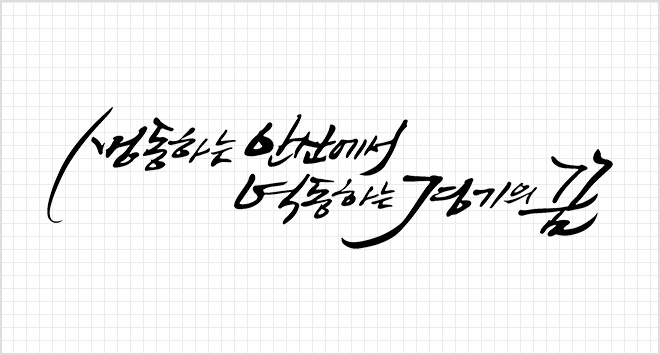 생동하는 안산에서
역동하는 경기의 꿈